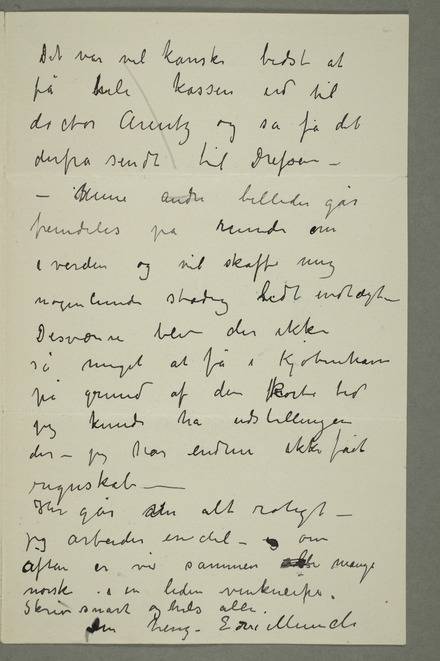 Det var vel kanske bedst at
få hele kassen ud til
doctor Arentz og så få det
derfra sendt til Drefsen –
– Mine andre billeder går
fremdeles på runde om
i verden og vil skaffe mig
nogenlunde stadig lidt indtægter
Desværre blev der ikke
så meget at få i Kjøbenhavn
på grund af den korte tid
jeg kunde ha udstillingen
der – jeg har endnu ikke fåt
regnskab –
Her går alt roligt –
jeg arbeider en del – og om
aften er vi sammen mange
norske i en liden vinkneipe.
Skriv snart og hils alle.
Din heng. Edv Munch